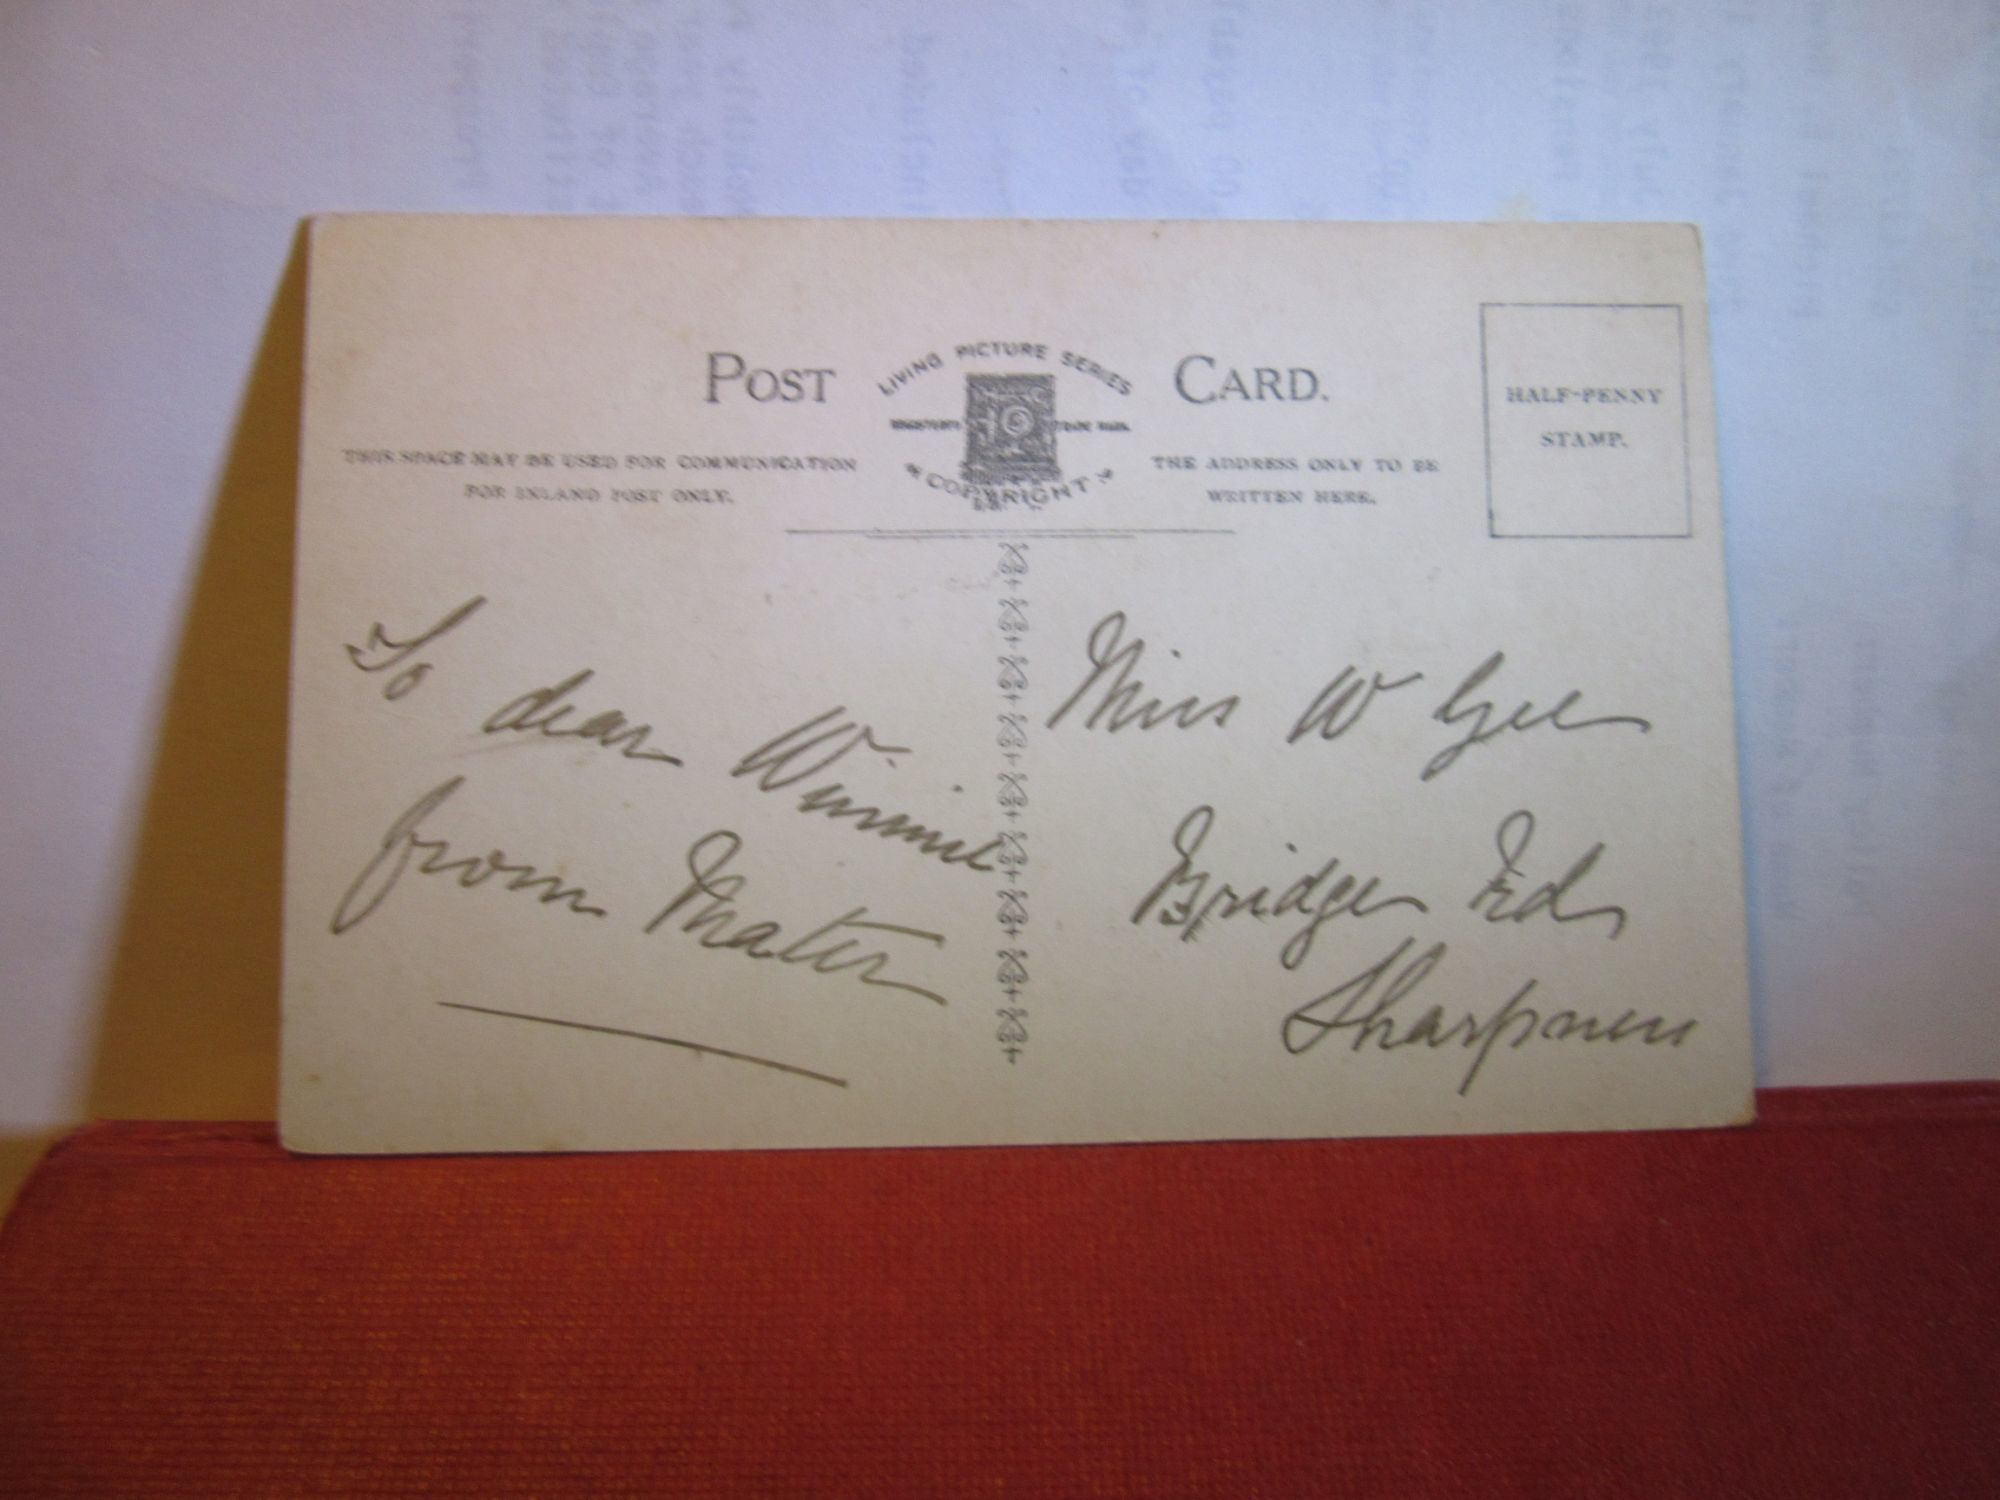 POST CARD.
LIVING PICTURE SERIES
COPYRIGHT
THIS SPACE MAY BE USED FOR COMMUNICATION
FOR INLAND POST ONLY.
THE ADDRESS ONLY TO BE
WRITTEN HERE.
HALF-PENNY
STAMP.
To dear Winnie
from Mater
Miss W Gee
Bridge Rd
Sharpness